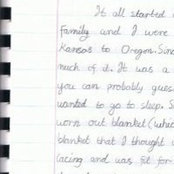 It all started
family and I were
Kansas to Oregon. Sinc
much of it. It was a
you can probably gues
wanted to go to sleep. S
worn out blanket (whic
blanket that I thought
lacing and was fit for